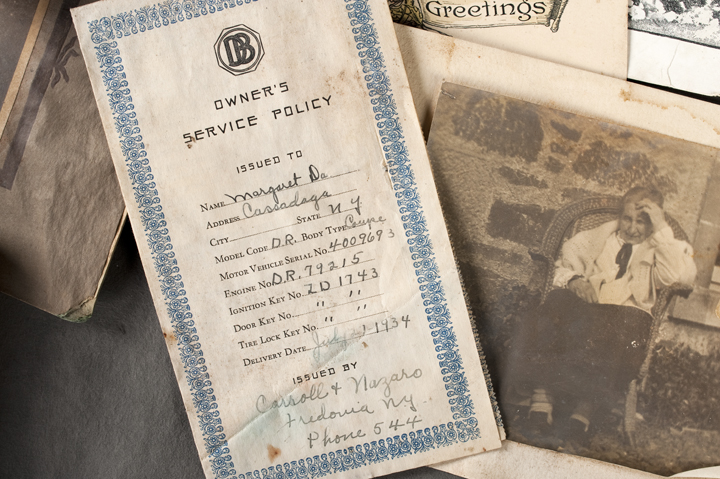 Greetings
DB
OWNER'S
SERVICE POLICY
ISSUED TO
NAME Margaret Da
ADDRESS Cassadaga
CITY STATE N Y
MODEL CODE D.R. BODY TYPE Coupe
MOTOR VEHICLE SERIAL NO. 4009693
ENGINE NO D.R. 79215
IGNITION KEY NO. 2D 1743
DOOR KEY NO. " "
TIRE LOCK KEY NO. " "
DELIVERY DATE 1934
ISSUED BY
Carroll & Nazaro
Fredonia Ny
Phone 544